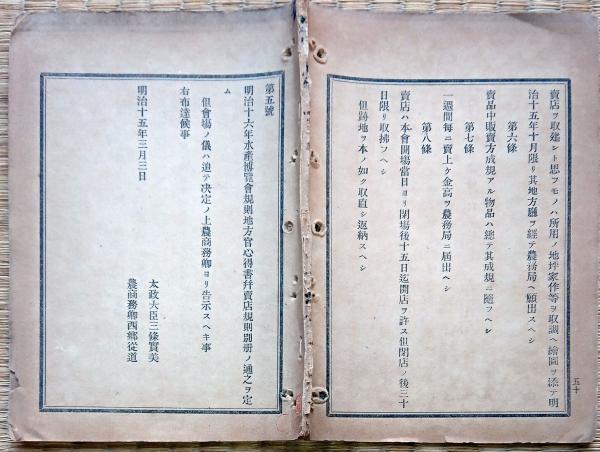 賣店ヲ取建シト思フモノハ所用ノ地坪家作等ヲ取調ヘ繪圖ヲ添テ明
治十五年十月限リ其地方廳ヲ經テ農務局ヘ願出スヘシ
第六條
賣品中販賣方成規アル物品ハ總テ其成規ニ隨フヘシ
第七條
一週間每ニ賣上ケ金高ヲ農務局ニ屆出ヘシ
第八條
賣店ハ本會開場當日ヨリ閉場後十五日迄開店ヲ許ス但閉店ノ後三十
日限リ取拂フヘシ
但跡地ヲ本ノ如ク取直シ返納スヘシ
五十
第五號
明治十六年水產博覽會規則地方官心得書幷賣店規則別册ノ通之ヲ定
ム
但會場ノ儀ハ追テ決定ノ上農商務卿ヨリ告示スヘキ事
右布達候事
明治十五年三月三日
太政大臣三條實美
農商務卿西鄕從道